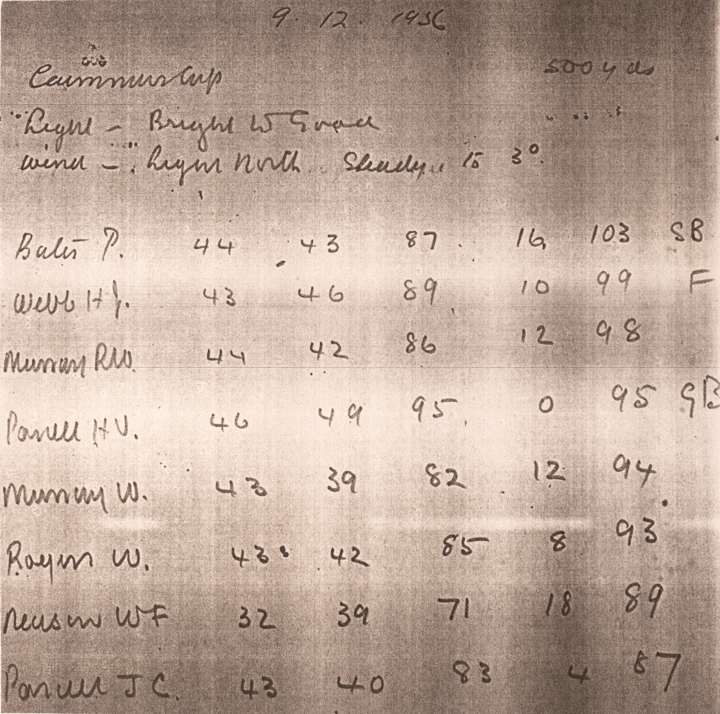 9. 12. 1936
Cup 500 yds
Light - Bright to Good
Wind - Light North Steady to 3°.
Bates P. 44 43 87 16 103 SB
Webb H J. 43 46 89 10 99 F
Murray RW. 44 42 86 12 98
Parnell H V. 46 49 95 0 95 GB
Murray W. 43 39 82 12 94
W. 43 42 85 8 93
WF 32 39 71 18 89
Parnell J C. 43 40 83 4 87